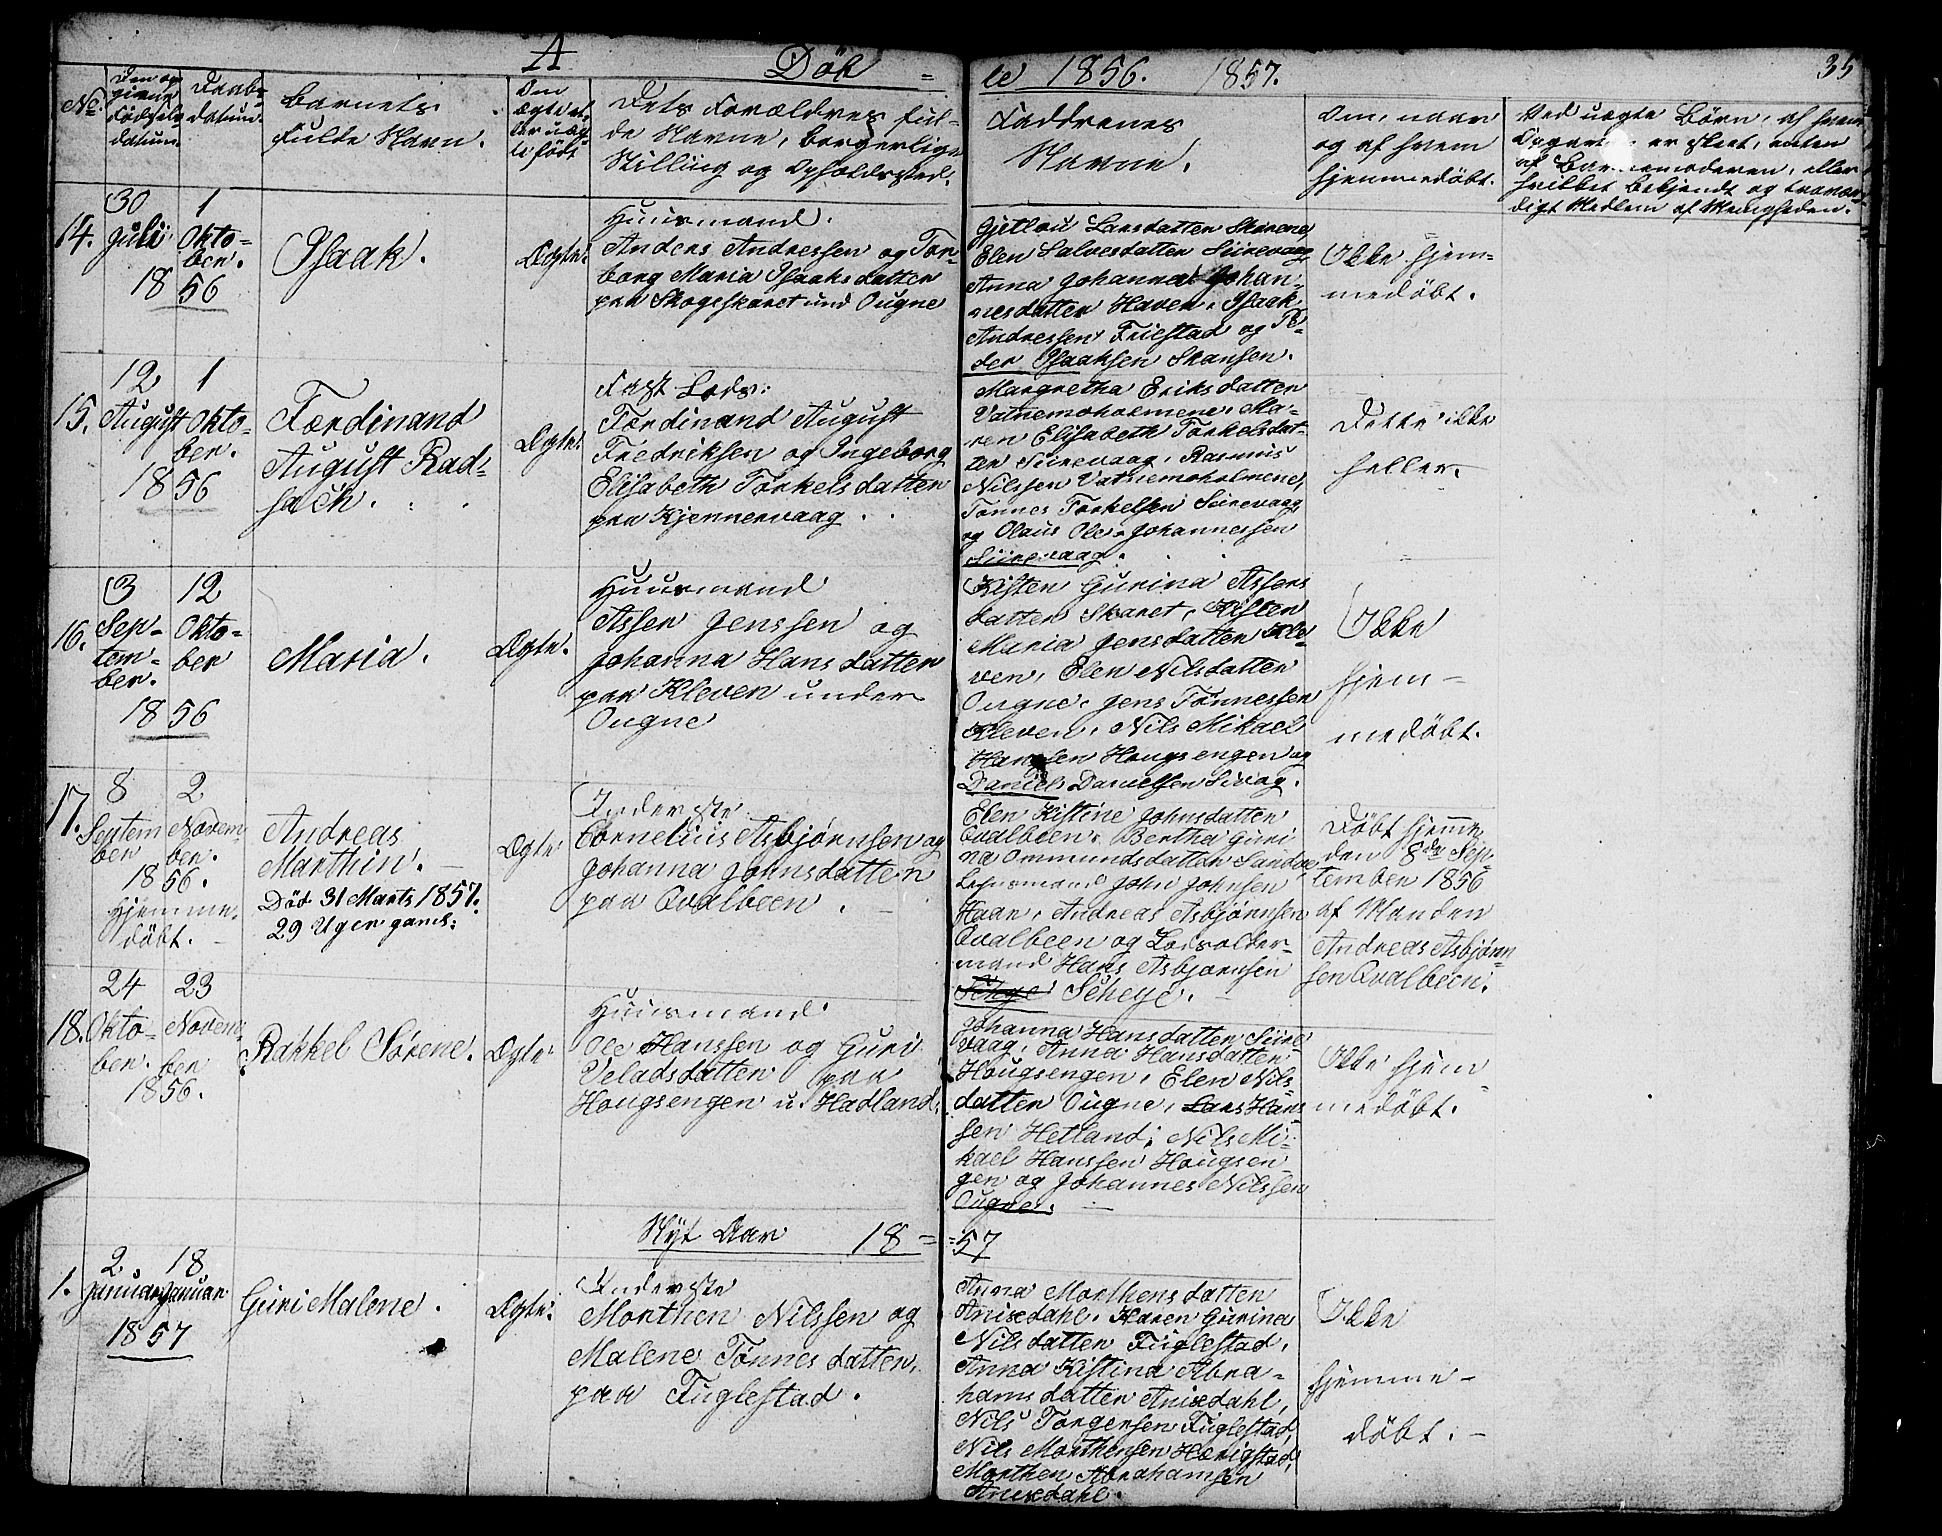 A Döb = te 1856. 1857. 35
No.
Den og-
givne
Födsels-
datum
Daabs-
datum.
Barnets
fulde Navn.
Om
ægte el-
ler uæg-
te født
Dets Forældres ful-
de Navne, borgerlige
Stilling og Opholdssted.
Faddrenes
Navne.
Om, naar
og af hvem
hjemmedöbt.
Ved uægte Börn, af hvem
er skeet, enten
af Barnemoderen, eller
hvilket bekjendt og trovær-
digt Medlem af Menigheden.
14.
30
Juli
1
Okto-
ber.
1856
Isaak.
Ægte.
Huusmand.
Anders Andressen og Tor-
borg Maria Isaaksdatter
paa Skogeskaret und Ougne
Gjetlou Larsdatter Skarene
Elen Salvesdatter Siirevaag
Anna Johanna Johan-
nesdatter Haven, Isaak
Andressen Friestad og Pe-
der Isaaksen Skansen.
Ikke hjem-
medöbt.
15.
12
August
1
Okto-
ber.
1856
Ferdinand
August Rad-
sach.
Ægte.
Fast Lods:
Ferdinand August
Fredriksen og Ingeborg
Elisabeth Torkelsdatter
paa Kjennervaag.
Margretha Eriksdatter
Vatnemoholmene, Ma-
ren Elisabeth Torkelsdat-
ter Siirevaag, Rasmus
Nilssen Vatnemoholmene,
Tönnes Torkelsen Siirevaag
og Olaus Ole Johannessen
Siirevaag.
Dette ikke
heller.
16.
3
Sep-
tem-
ber.
12
Okto-
ber
1856
Maria.
Ægte.
Huusmand
Asser Jenssen og
Johanna Hansdatter
paa Kleven under
Ougne
Kisten Gurina Assers
datter Skaret, Kisten
Maria Jensdatter Kle-
ven, Elen Nilsdatter
Ougne, Jens Tönnessen
Kleven, Nils Mikael
Hanssen Hougsengen og
Daniel Danielsen Sirvag.
Ikke
hjem-
medöbt.
17.
8
Septem
ber
2
Novem-
ber.
1856.
Hjemme-
döbt.
Andreas
Marthin.
Död 31 Marts 1857.
29 Uger gamle.
Ægte
Inderste
Cornelius Asbjørnsen og
Johanna Johnsdatter
paa Qvalbeen.
Elen Kistine Johnsdatter
Qvalbeen, Bertha Guri
na Ommundsdatter Sandve
Lehnsmand John Johnsen
Haar, Andreas Asbjørnsen
Qvalbeen og Lodsolder-
mand Hans Asbjørnsen
Siheye.
Döbt hjemme
den 8de Sep-
tember 1856
af Manden
Andreas Asbjørn-
sen Qvalbeen.
18.
24
Okto-
ber.
23
Novem
ber
1856.
Rakkel Sørene.
Ægte
Huusmand.
Ole Hanssen og Guri
Teladsdatter paa
Hougsengen u. Hadland.
Johanna Hansdatter Siire
vaag, Anna Hansdatter
Hougsengen, Elen Nils-
datter Ougne, Lars Hans
sen Hetland, Nils Mi-
kael Hanssen Hougsen-
gen og Johannes Nilssen
Ougne.
Ikke hjem
medöbt.
Nyt Aar 18 = 57
1.
2
Januar
18
Januar
1857
Guri Malene.
Ægte.
Inderste
Morthen Nilssen og
Malene Tönnesdatter
paa Fuglestad.
Anna Morthensdatter
Anisedahl, Karen Gurina
Nilsdatter Fuglestad,
Anna Kistina Abra-
hamsdatter Anisedahl,
Nils Torgersen Fuglestad,
Nils Morthensen Hærigstad,
Morthen Abrahamsen
Anisedahl.
Ikke
hjemme-
döbt.